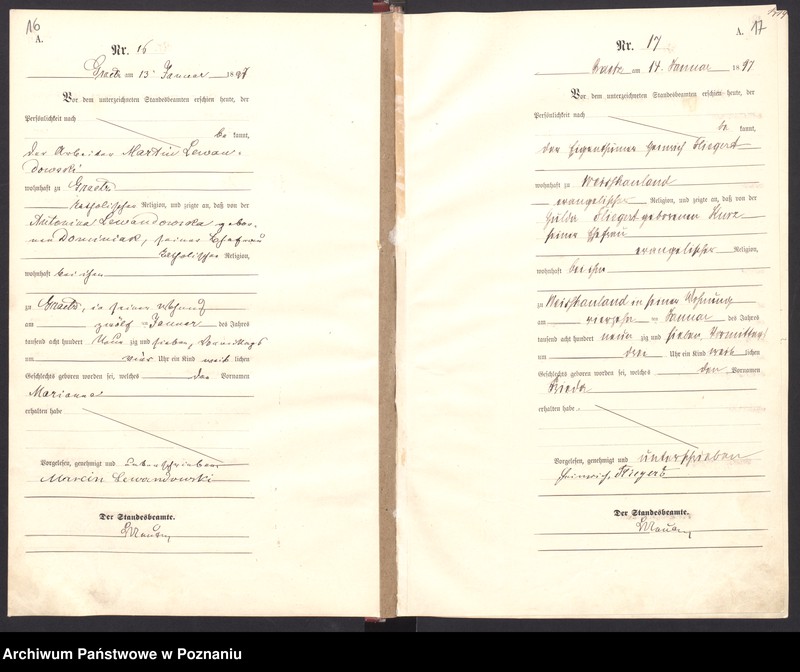 16
A.
Nr. 16
Graetz am 13. Januar 1897
Vor dem unterzeichneten Standesbeamten erschien heute, der
Persönlichkeit nach
be kannt,
der Arbeiter Martin Lewan-
dowski
wohnhaft zu Graetz
katholischer Religion, und zeigte an, daß von der
Antonina Lewandowska gebor-
nen Dominiak, seiner Ehefrau
katholischer Religion,
wohnhaft bei ihm
zu Graetz, in seiner Wohnung
am zwölf ten Januar des Jahres
tausend acht hundert neun zig und sieben, Vormittags
um vier Uhr ein Kind weib lichen
Geschlechts geboren worden sei, welches den Vornamen
Marianna
erhalten habe
Vorgelesen, genehmigt und unterschrieben
Marcin Lewandowski
Der Standesbeamte.
A. 17
Nr. 17
Graetz am 14. Januar 1897
Vor dem unterzeichneten Standesbeamten erschien heute, der
Persönlichkeit nach
be kannt,
der Eigenthümer Heinrich Fliegert
wohnhaft zu
evangelischer Religion, und zeigte an, daß von der
Hulda Fliegert geborenen Kurz
seiner Ehefrau
evangelischer Religion,
wohnhaft bei ihm
zu in seiner Wohnung
am vierzehn ten Januar des Jahres
tausend acht hundert neun zig und sieben, Vormittags
um drei Uhr ein Kind weib lichen
Geschlechts geboren worden sei, welches den Vornamen
erhalten habe
Vorgelesen, genehmigt und unterschrieben
Heinrich Fliegert
Der Standesbeamte.
Archiwum Państwowe w Poznaniu